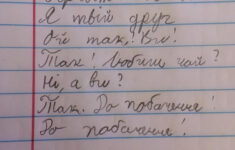 Я твій друг
Ой так! Ви!
Так! Любиш чай?
Ні, а ви?
Так. До побачення!
До побачення!